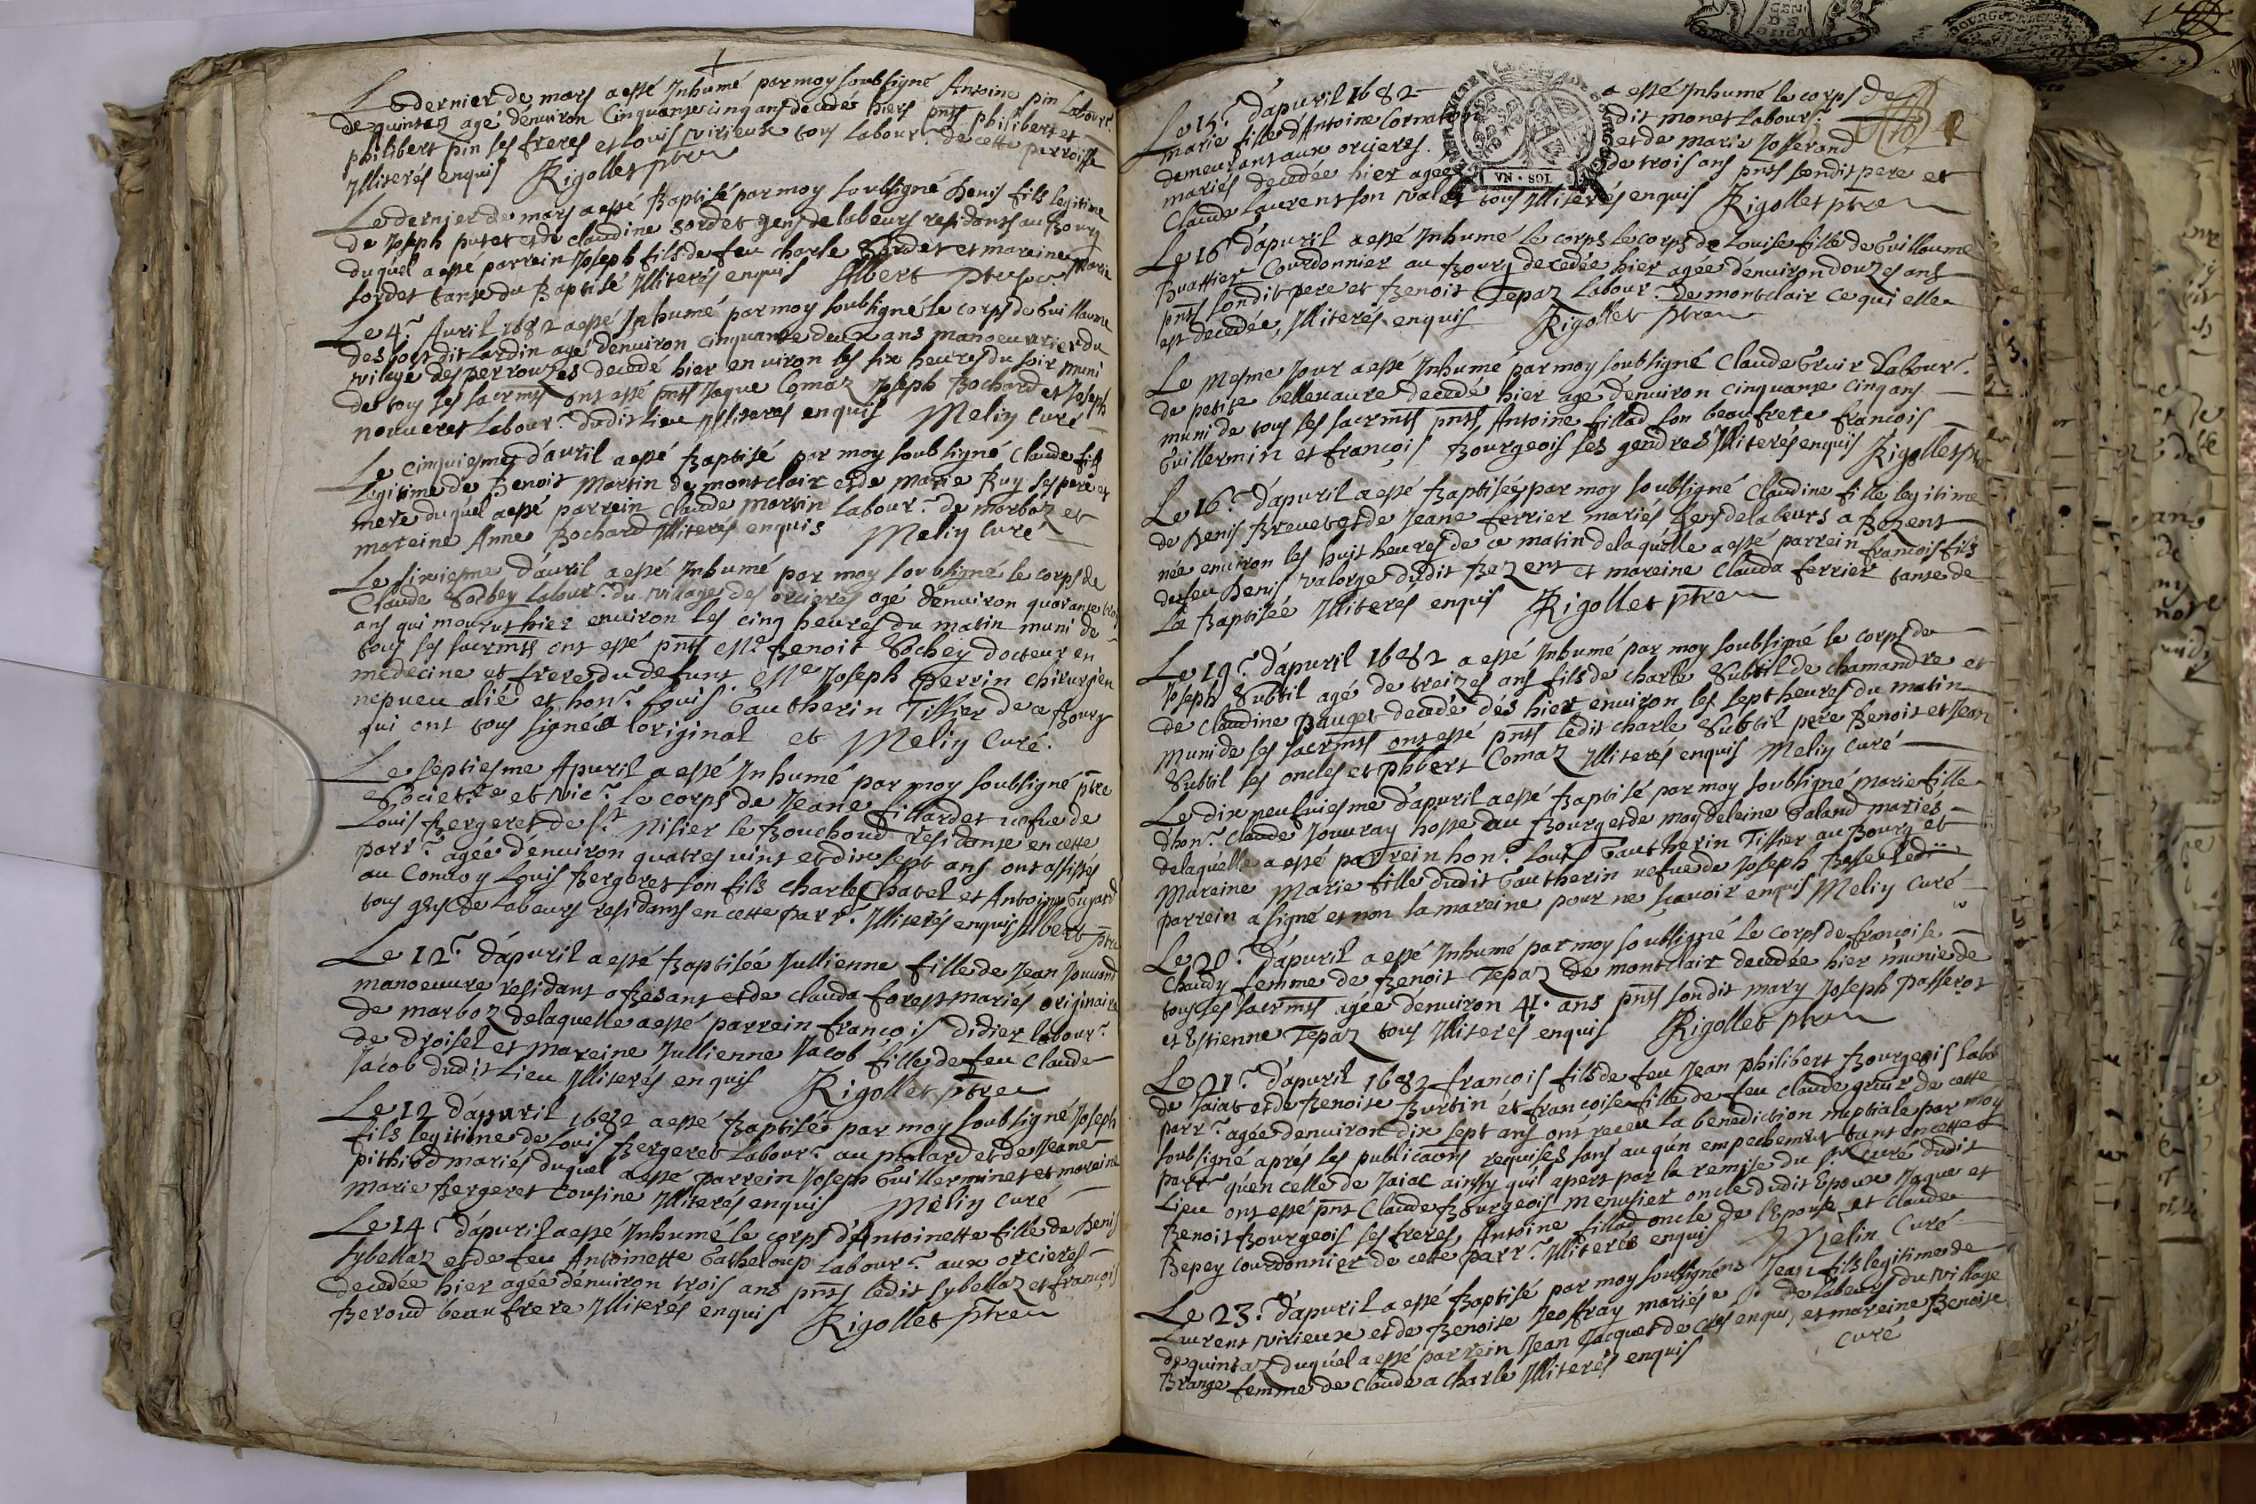 Le dernier de mars a esté Inhumé par moy soubsigné Antoine pin Labour.
de quintaz agé d'environ Cinquante cinq ans decedé hiers pnts philibert et
philibert pin ses freres et Louis virieux tous Labour.r de cette parroisse
Illiterés enquis Rigollet ptre
Le dernier de mars a esté Baptisé par moy soubsigné Denis fils legitime
de Joseph putet et de claudine Sordet gens de labeurs residants au Bourg
duquel a esté parrein Joseph fils de feu charle Sordet et mareine Marie
Sordet tante du Baptisé Illiterés enquis Albert ptre soc.
Le 4.e Avril 1682 a esté Inhumé par moy soubsigné le corps de Guillaume
des dit Lardin agé d'environ cinquante deux ans manoeuvrier du
vilage des perrouzes decedé hier environ les six heures du soir muni
de tous ses sacrmts ont esté pnts Jaque Comaz Joseph Bochard et Joseph
nouveret Labour.r dudit Lieu Illiteres enquis Meliy Curé
Le cinquiesme d'avril a esté Baptisé par moy soubsigné Claude fils
Legitime de Benoit Martin de montclair et de Marie Ruy ses pere et
mere duquel a esté parrein Claude Martin Labour.r de marboz et
mareine Anne Bochard Illiterés enquis Meliy Curé
Le sixiesme d'avril a esté Inhumé par moy soubsigné le corps de
Claude Sochey Labour.r du village des orcieres agé d'environ quarante trois
ans qui mourut hier environ les cinq heures du matin muni de
tous ses sacrmts ont esté pnts Me. Benoit Sochey docteur en
medecine et frere du defunt Me Joseph Perrin chirurgien
nepveu alié et hon.r Louis Gautherin Tissier de ce Bourg
qui ont tous signé a l'original et Meliy Curé.
Le septiesme Apuril a esté Inhumé par moy soubsigné ptre
Societ.re et vic.r le corps de Jeane fillardet vefue de
Louis Bergeret de St. Nisier le Bouchoud residante en cette
parr.e agée d'environ quatres vint et dix sept ans ont assistés
au Convoy Louis Bergeret son fils charle Chatel et Antoine Guyard
tous gens de Labeurs residants en cette parr.e Illiterés enquis Albert ptre
Le 12.e d'apuril a esté Baptisée Jullienne fille de Jean Jouvand
manoeuvre residant a Besant et de Clauda forest mariés originaire
de marboz de laquelle a esté parrein françois Didier labour.r
de droisel et Mareine Jullienne Jacob fille de feu Claude
Jacob dudit Lieu Illiterés enquis Rigollet ptre
Le 12 d'apuril 1682 a esté Baptisée par moy soubsigné Joseph
fils legitime de Louis Bergeret Labour.r au molard et de Jeane
pithiod mariés duquel a esté parrein Joseph Guillerminet et mareine
Marie Bergeret Cousine Illiterés enquis Meliy Curé
Le 14.e d'apuril a esté Inhumé le corps d'Antoinette fille de Denis
Sybellaz et de feu Antoinette Catheloup Labour.r aux orcieres
decedée hier agée d'environ trois ans pnts ledit Sybellaz et françois
Beroud beau frere Illiterés enquis Rigollet ptre
Le 15.e d'apuril 1682 a esté Inhumé le corps de
marie fille d'Antoine Cornaton dit monet Labour.r
demeurant aux orcieres. et de marie Josserand
mariés decedée hier agee de trois ans pnts sondit pere et
Claude Laurent son valet tous Illiterés enquis Rigollet ptre
VN · SOL
Le 16.e d'apuril a esté Inhumé le corps le corps de Louise fille de Guillaume
Buattier Courdonnier au Bourg decedée hier agée d'environ douzes ans
pnts sondit pere et Benoit Tepaz Labour.r de montclair ce qui elle
est decedée, Illiterés enquis Rigollet ptre
Le Mesme Jour a esté Inhumé par moy soubsigné Claude Gruir Labour.r
de petite bellevavre decedé hier agé d'environ cinquante cinq ans
muni de tous ses sacrmts pnts Antoine fillad son beau frere francois
Guillermin et françois Bourgeois ses gendres Illiterés enquis Rigollet ptre
Le 16.e d'apuril a esté Baptisée par moy soubsigné Claudine fille legitime
de Denis Brevet et de Jeane ferrier mariés Gens de labeurs a Bezent
née environ les huit heures de ce matin de laquelle a esté parrein francois fils
de feu Denis valorge dudit Bezent et mareine Clauda ferrier tante de
La Baptisée Illiterés enquis Rigollet ptre
Le 19.e d'apuril 1682 a esté Inhumé par moy soubsigné le corps de
Joseph Subtil agé de treizes ans fils de charle Subtil de chamandre et
de Claudine Pauget decedé dés hier environ les sept heures du matin
muni de ses sacrmts ont esté pnts ledit charle Subtil pere Benoit et Jean
Subtil ses oncles et phbert Comaz Illiterés enquis Meliy Curé
Le dix neufuiesme d'apuril a esté Baptisé par moy soubsigné Marie fille
d'hon.r Claude Jouvray hoste au Bourg et de magdeleine Galand mariés
de laquelle a esté parrein hon.r Louis Gautherin Tissier au Bourg et
Mareine Marie fille dudit Gautherin vefue de Joseph Basset ledit
parrein a signé et non la mareine pour ne sçavoir enquis Meliy Curé
Le 20.e d'apuril a esté Inhumé par moy soubsigné le corps de francoise
Chaudy femme de Benoit Tepaz de montclair decedée hier munie de
tous ses sacrmts agée denviron 41. ans pnts sondit mary Joseph Passerot
et Estienne Tepaz tous Illiterés enquis Rigollet ptre
Le 21.e d'apuril 1682 francois fils de feu Jean philibert Bourgeois labr
de Jaiat et de Benoise Burtin et francoise fille de feu claude gruir de cette
parr.e agée denviron dix sept ans ont receu la benediction nuptiale par moy
soubsigné aprés les publicaons requises sans auqun empechement tant en cette
parr.e quen celle de Jaiac ainsy qui apert par la remise du Sr Curé dudit
Lieu ont esté pnt Claude Bourgeois menusier oncle dudit Epoux Jaque et
Benoit Bourgeois ses freres, Antoine fillad oncle de l'Epouse et Claude
Bepey Courdonnier de cette parr.e Illiterés enquis Melin Curé
Le 23.e d'apuril a esté Baptisé par moy soubsigné Jean fils legitime de
Laurent virieux et de Benoise Jeoffray mariés de labeurs du village
de quintaz duquel a esté parrein Jean Jacquet de enquis, et mareine Benoise
Brange femme de Claude a charle Illiterés enquis curé